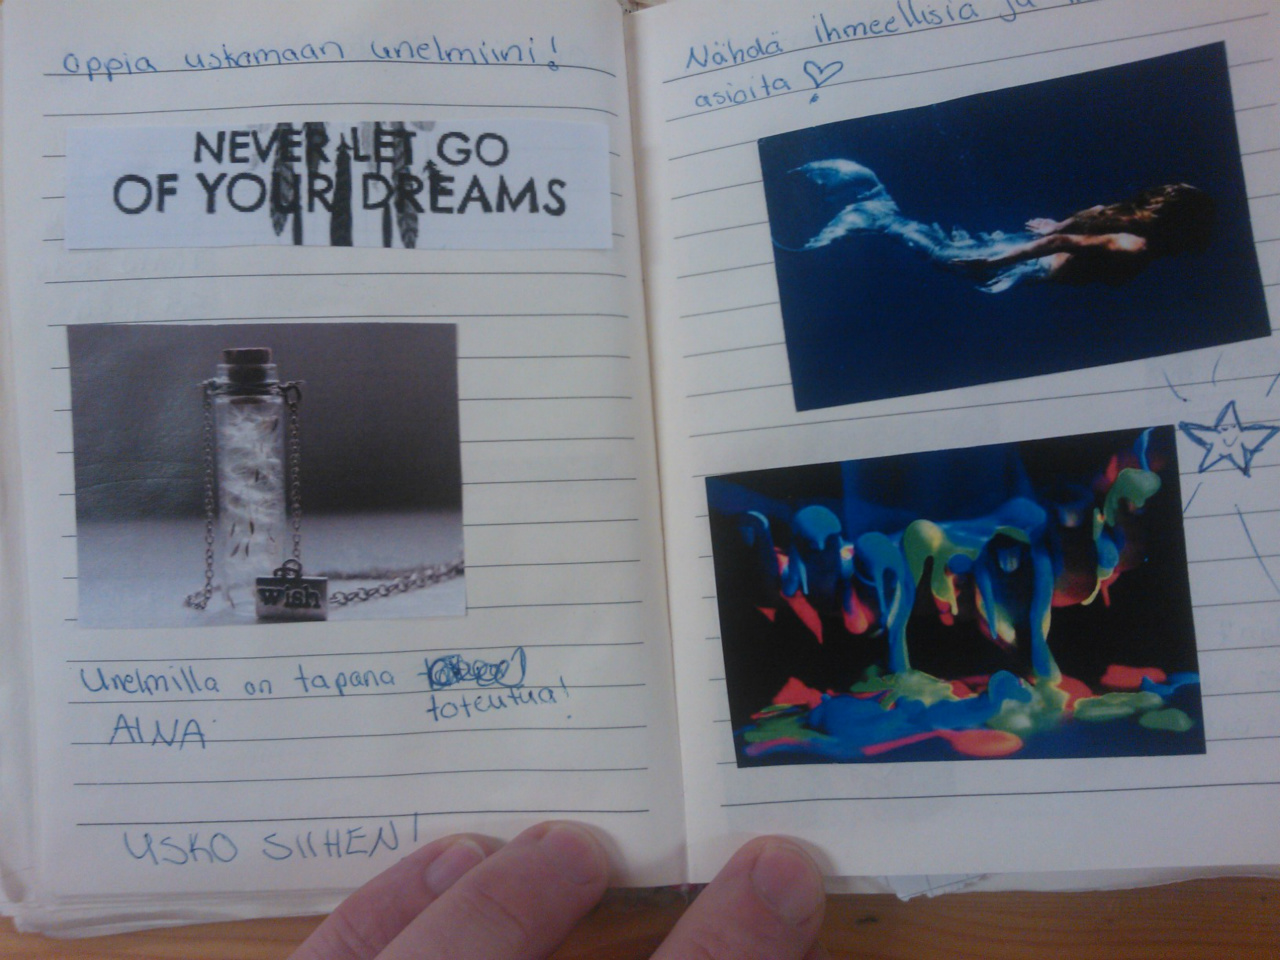 oppia uskomaan unelmiini!
NEVER LET GO
OF YOUR DREAMS
wish
Unelmilla on tapana
toteutua!
AINA
USKO SIIHEN!
Nähdä ihmeellisiä ja
asioita